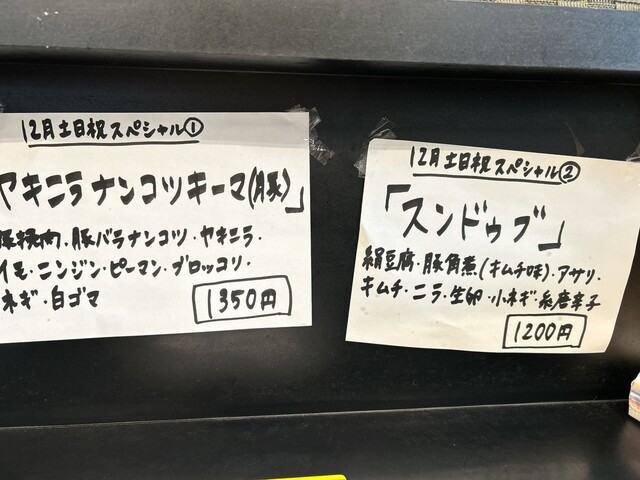 12月土日祝スペシャル①
ヤキニラナンコツキーマ(豚)」
豚挽肉・豚バラナンコツ・ヤキニラ・
イモ・ニンジン・ピーマン・ブロッコリ・
ネギ・白ゴマ
1350円
12月土日祝スペシャル②
「スンドゥブ」
絹豆腐・豚角煮(キムチ味)・アサリ・
キムチ・ニラ・生卵・小ネギ・糸唐辛子
1200円